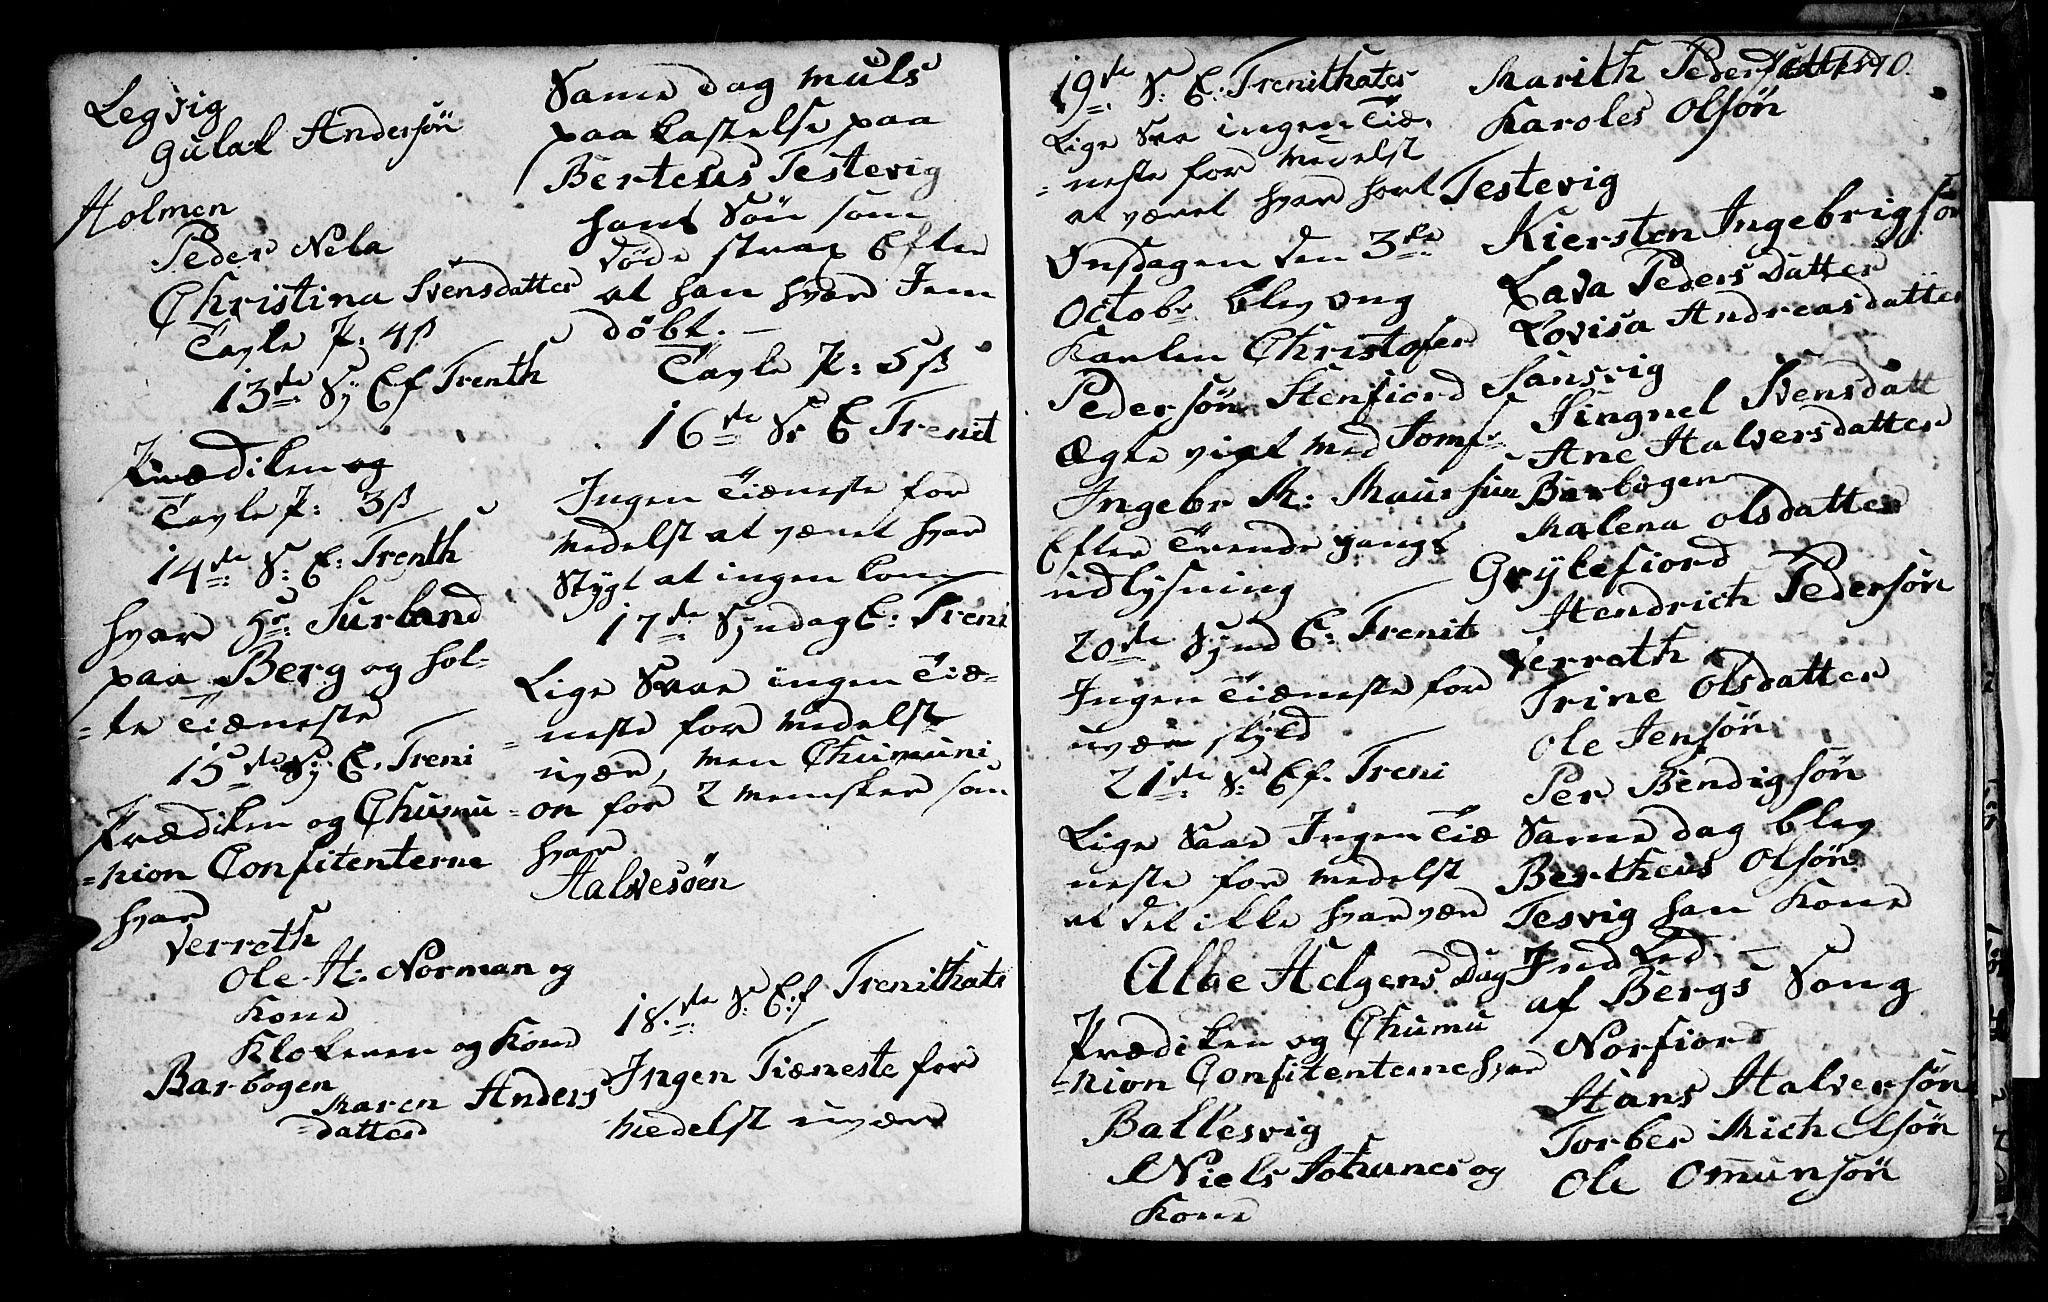 Legvig
Gulak Andersøn
Holmen
Peder Nela
Christina Svensdatter
Tavle P: 4ß
13de Sy Ef Trenth
Prædiken og
Tavle P: 3ß
14de S: E: Trenth
hvar Hr: Surland
paa Berg og hol-
-te Tiæneste
15de Sy E. Treni
Prædiken og Chumu
-nion Confitenterne
hvar
Verreth
Ole H: Norman og
Kone
Klokeren og Kone
Barbogen
Maren Anders
-datter
Same dag muls
paa kastelse paa
Berteus Testevig
hans Søn som
døde strax Efter
at han hvar Jem
døbt. —
Tavle P: 5ß
16de S: E Trenit
Ingen Tiæneste for
medelst at veret hvar
Stygt at ingen kom
17de Syndag E: Treni
Lige Saae ingen Tiæ-
-neste for medelst
uvær, men Chumuni
-on for 2 mensker som
hvar
Halvesøen
18de S: E:f Trenithats
Ingen Tiæneste for
medelst uvær
19de S: E: Trenithates
Lige Saa ingen Tiæ.
-neste for medelst
at veret hvar hart
Onsdagen den 3de
Octobr blev ung
Karlen Christofer
Pedersøn Stenfiord
Ægte viet med Jomfr
Ingebr M: Maursun
Efter Trende gangs
udlysning
20de Synd E: Trenit
Ingen Tiæneste for
uvær skyld
21de S: Ef. Treni
Lige Saae Ingen Tiæ
neste for medelst
at det ikke hvar vær
Alle Helgens Dag
Prædiken og Chumu
-nion Confitenterne hvar
Ballesvig
Niels Johanes og
Kone
Marith Pedersdatter 10.
Karoles Olsøn
Testevig
Kiersten Ingebrigsøn
Lava Peders Datter
Lovisa Andreasdatter
Sansvig
Singnel Svensdatt
Ane Halversdatter
Barbogen
Malena olsdatter
Gryllefiord
Hendrich Pedersøn
Verrath
Trine Olsdatter
Ole Jensøn
Per Bendigsøn
Same dag blev
Bertheus Olsøn
Tesvig han Kone
Ind Led. —
af Bergs Song
Norfiord
Hans Halversøn
Torber Michelsøn
Ole Omunsøn